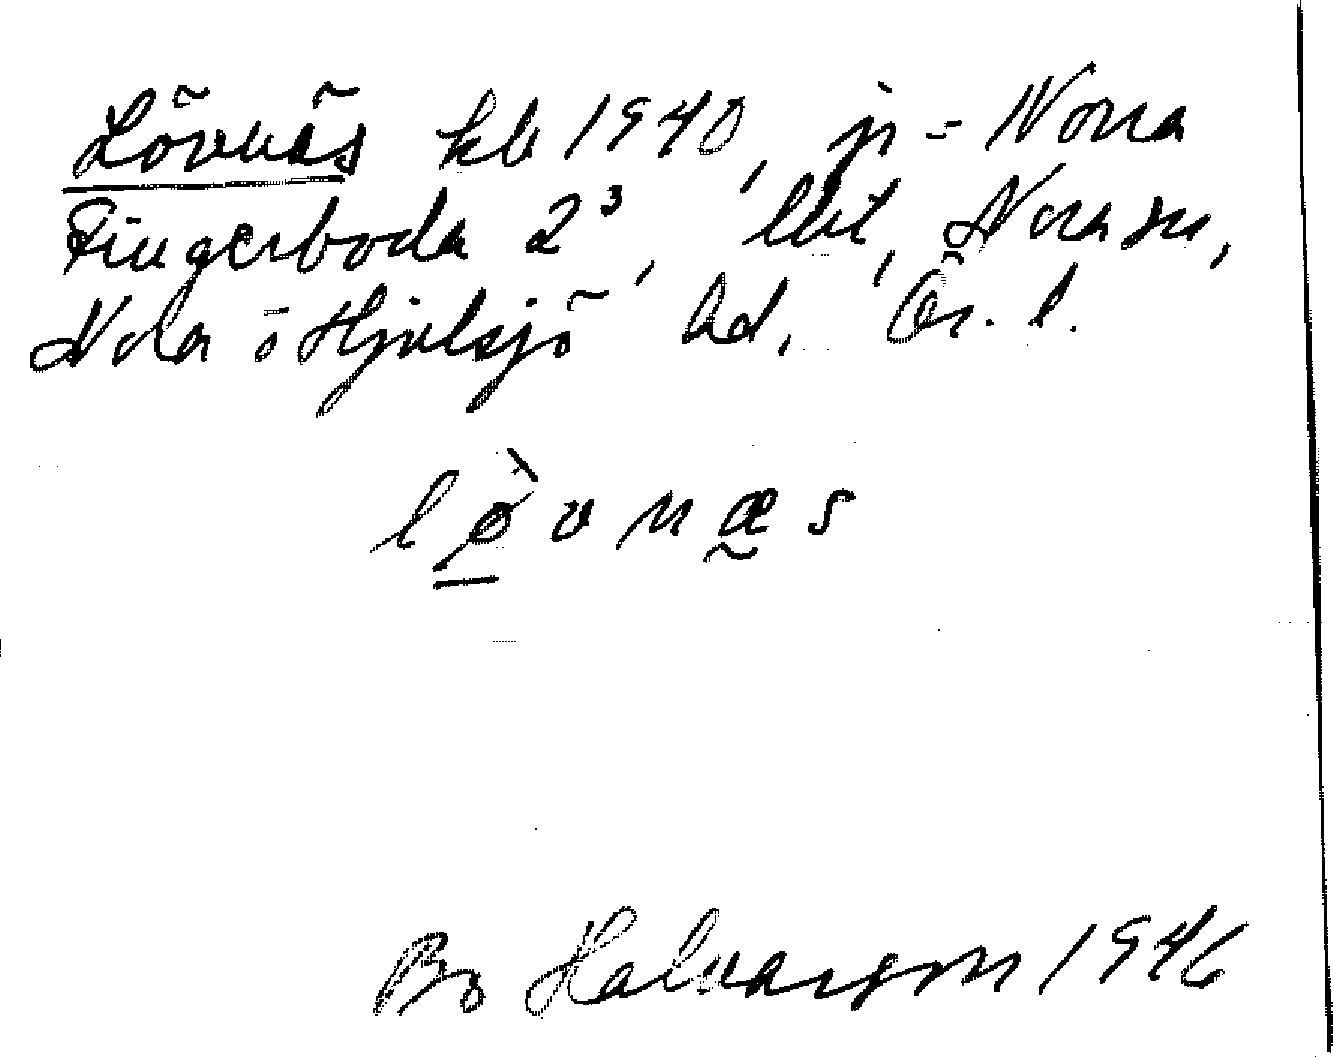 Lövnäs kb 1940, jr = Norra
Fingerboda 2³, lht, Nora sn,
Nora o Hjulsjö hd, Ör. l.
lø̀vnæs
Bo Halvarson 1946